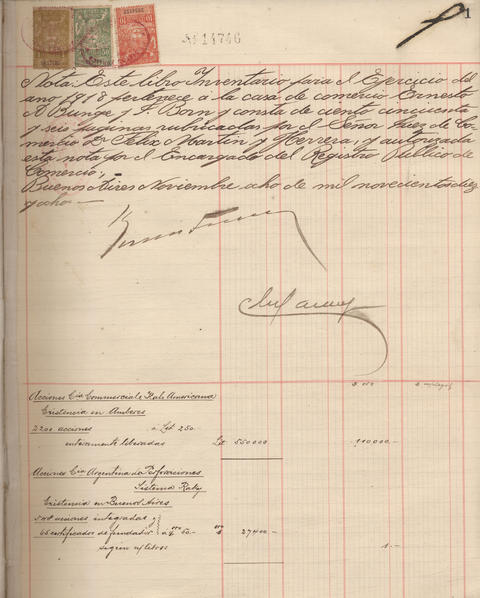 1
Nº 14746
Nota: Este libro Inventario para el Ejercicio del
año 1918 pertenece à la casa de comercio Ernesto
A Bunge y J. Born y consta de ciento cincuenta
y seis paginas rubricadas por el Señor Juez de Co-
mercio Dr Felix Martin y Herrera, y autorizada
esta nota por el Encargado del Registro Publico de
Comercio;
Buenos Aires Noviembre ocho de mil novecientos diez
y ocho —
Acciones Cia Commerciale Italo Americana
Existencia en Amberes
2200 acciones à Lit 250.-
enteramente liberadas Lit 550000 110000.-
Acciones Cia Argentina de Perforaciones
Sistema Raky
Existencia en Buenos Aires
acciones integradas y
certificados de fundador
27400.-
segun n/libros 1.-